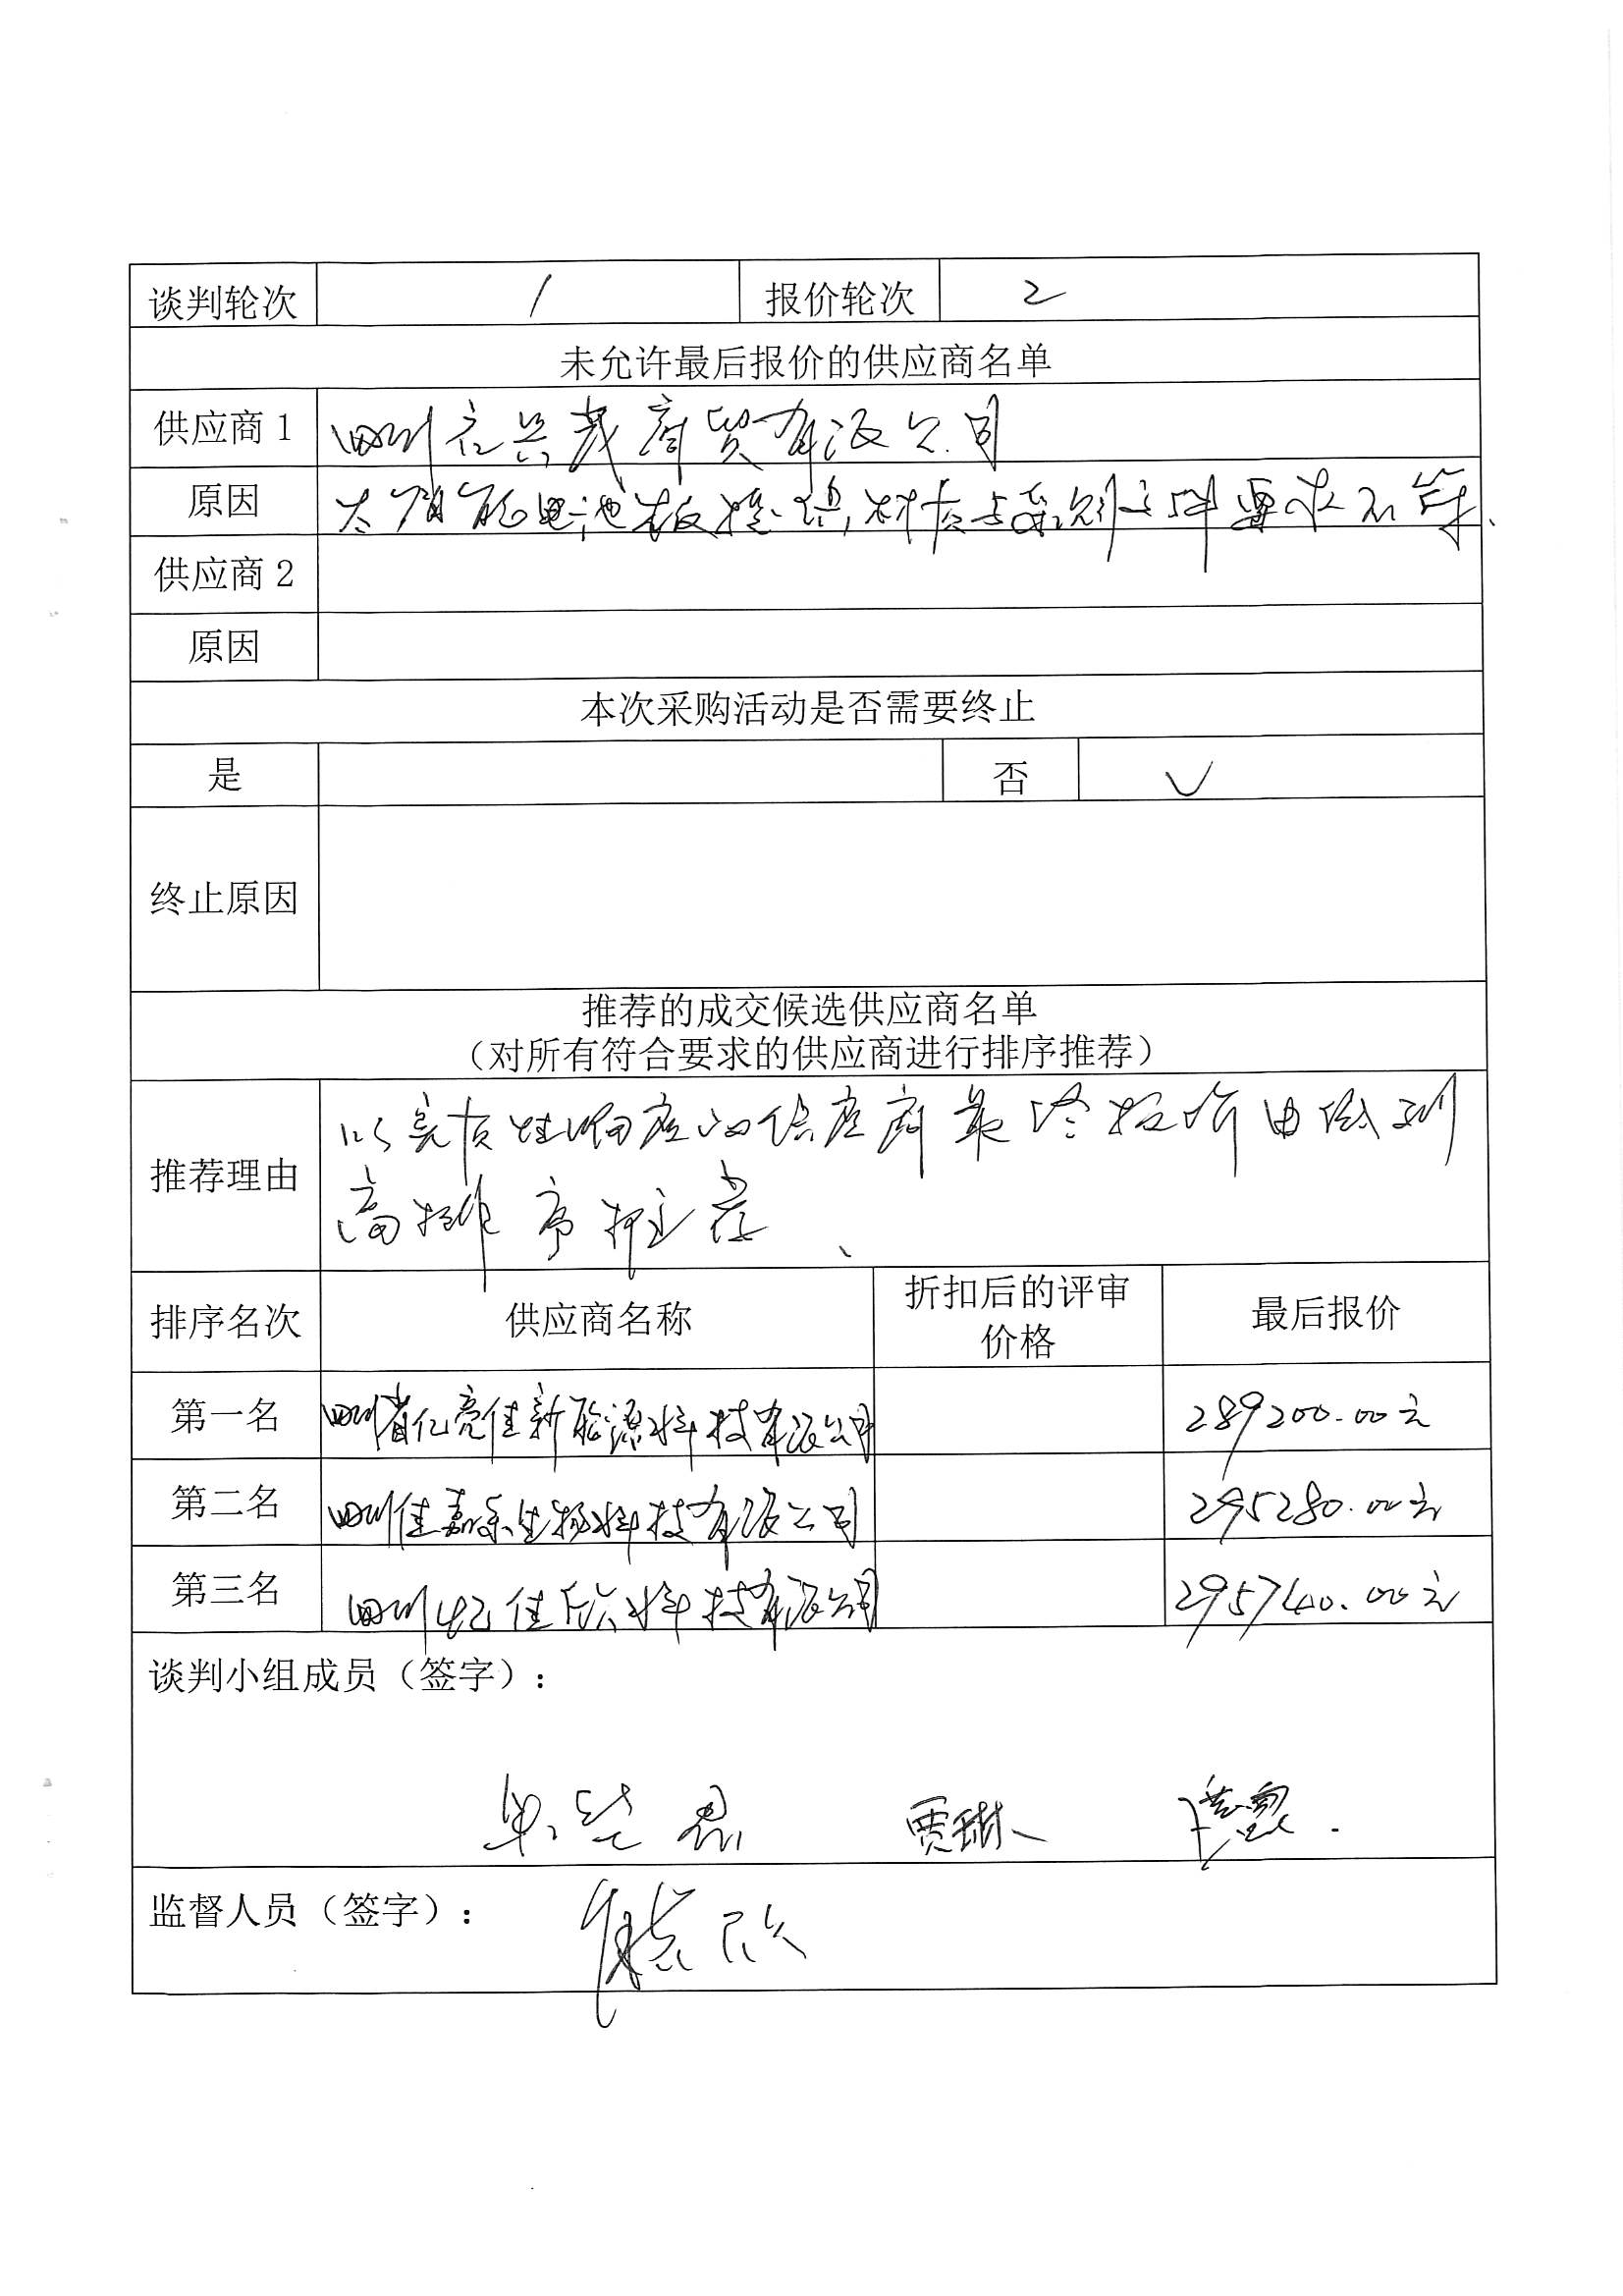 谈判轮次 1 报价轮次 2
未允许最后报价的供应商名单
供应商1 四川 兴茂商贸有限公司
原因 太阳能电池板 材质与谈判文件要求不符、
供应商2
原因
本次采购活动是否需要终止
是 否 √
终止原因
推荐的成交候选供应商名单
（对所有符合要求的供应商进行排序推荐）
推荐理由 以实质性响应的供应商最终报价由低到
高排序推荐、
排序名次 供应商名称 折扣后的评审价格 最后报价
第一名 四川省亿亮佳新能源科技有限公司 289200.00元
第二名 四川佳嘉乐生物科技有限公司 295280.00元
第三名 四川忆佳欣科技有限公司 295740.00元
谈判小组成员（签字）：
贾琳
监督人员（签字）：